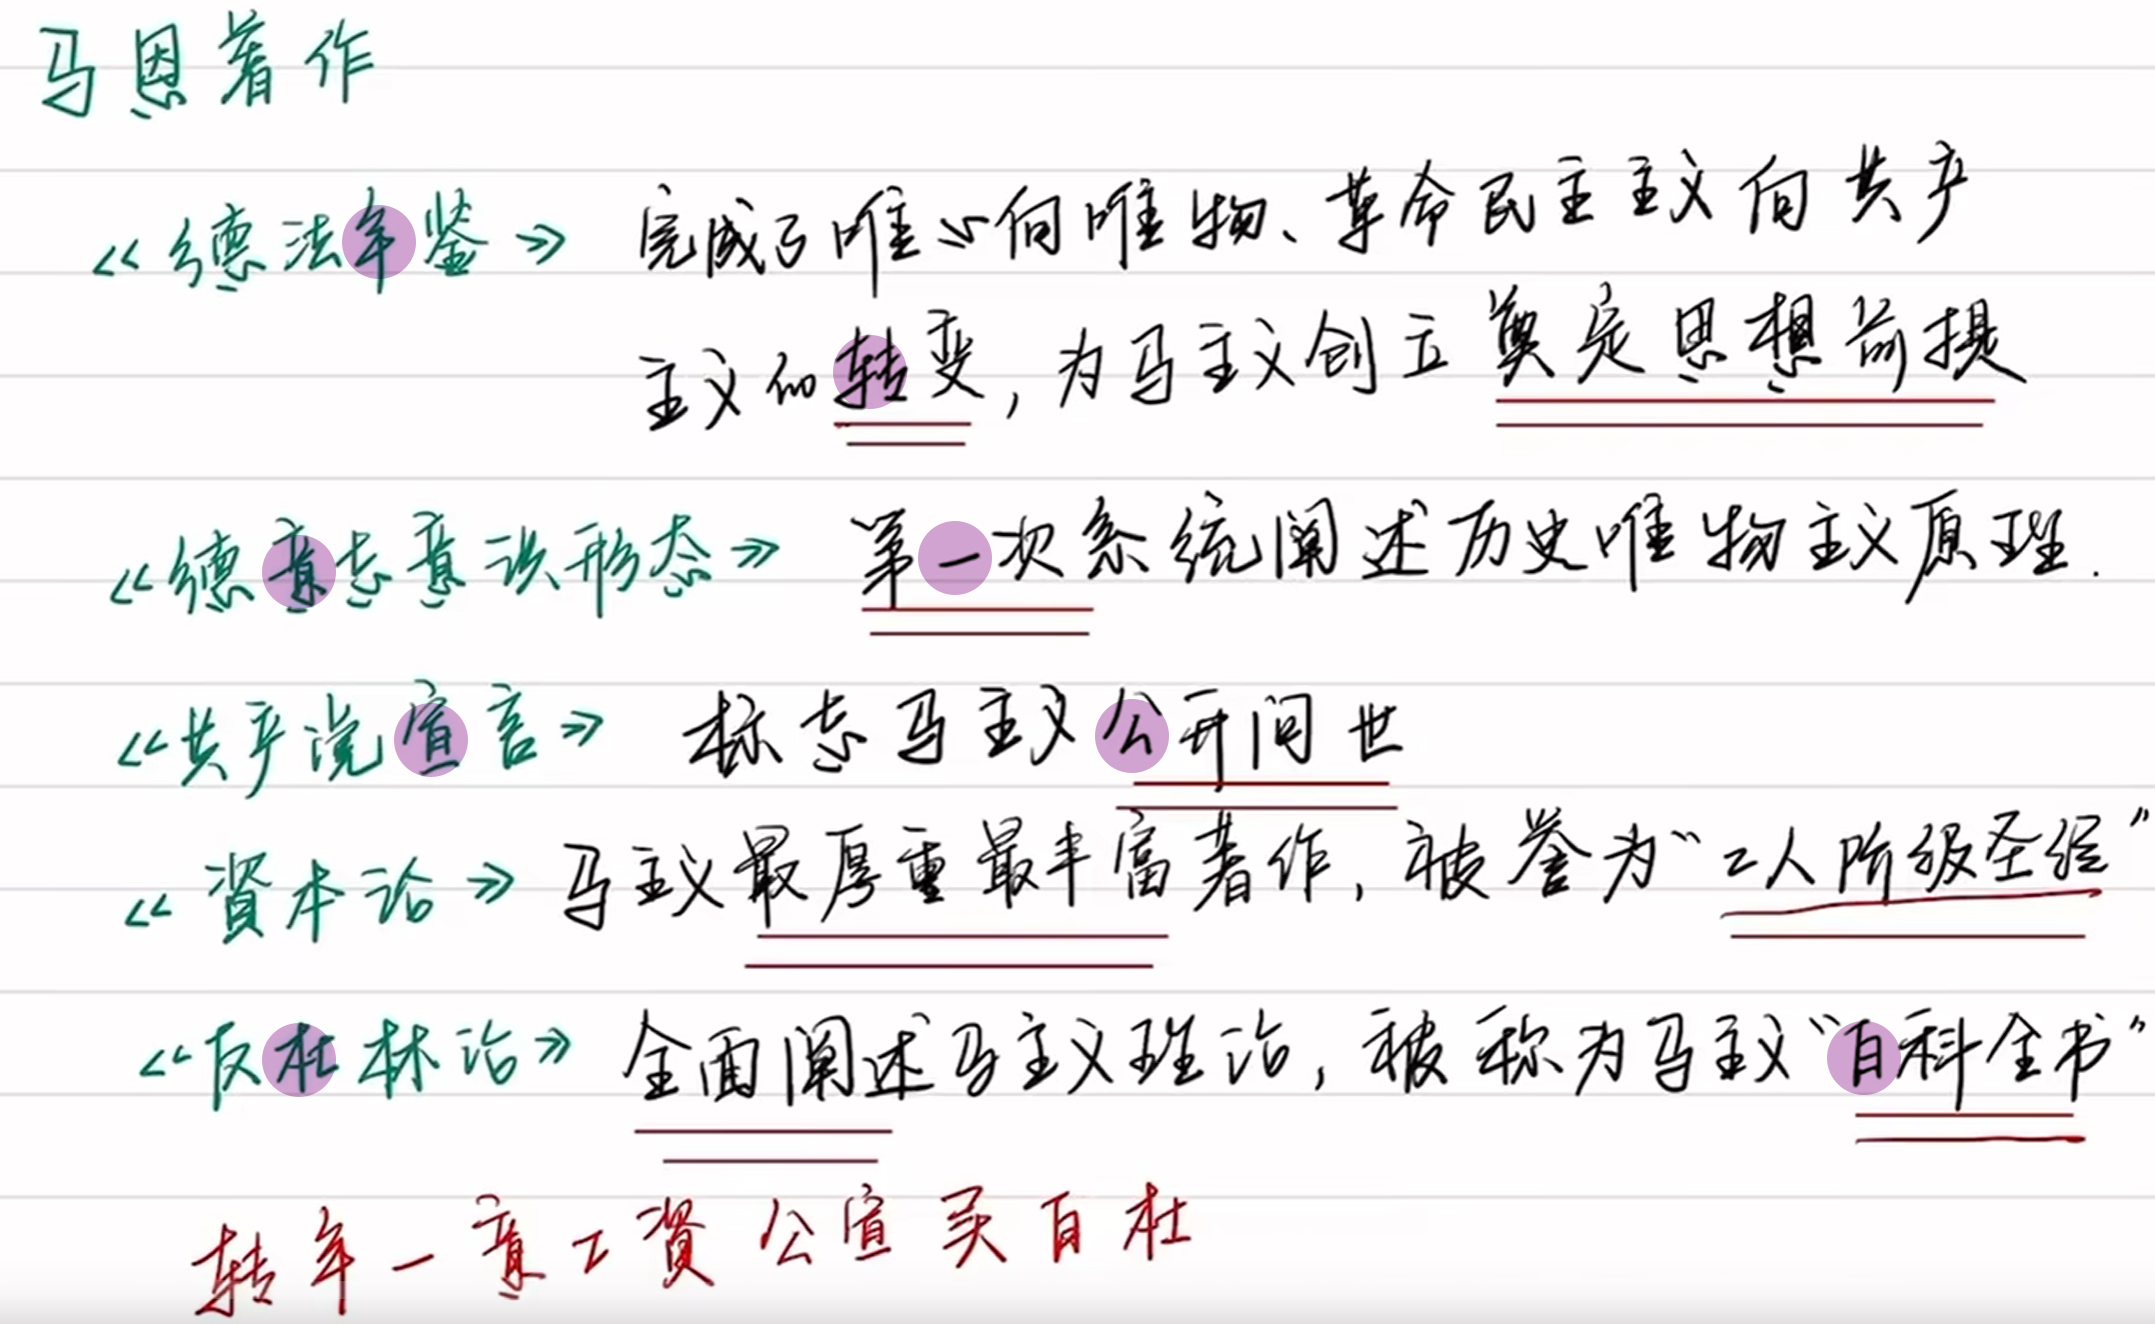 马恩著作
《德法年鉴》 完成了唯心向唯物、革命民主主义向共产
主义的转变，为马主义创立奠定思想前提
《德意志意识形态》 第一次系统阐述历史唯物主义原理.
《共产党宣言》 标志马主义公开问世
《資本论》 马主义最厚重最丰富著作，被誉为“工人阶级圣经”
《反杜林论》 全面阐述马主义理论，被称为马主义“百科全书”
转年一意工資公宣买百杜